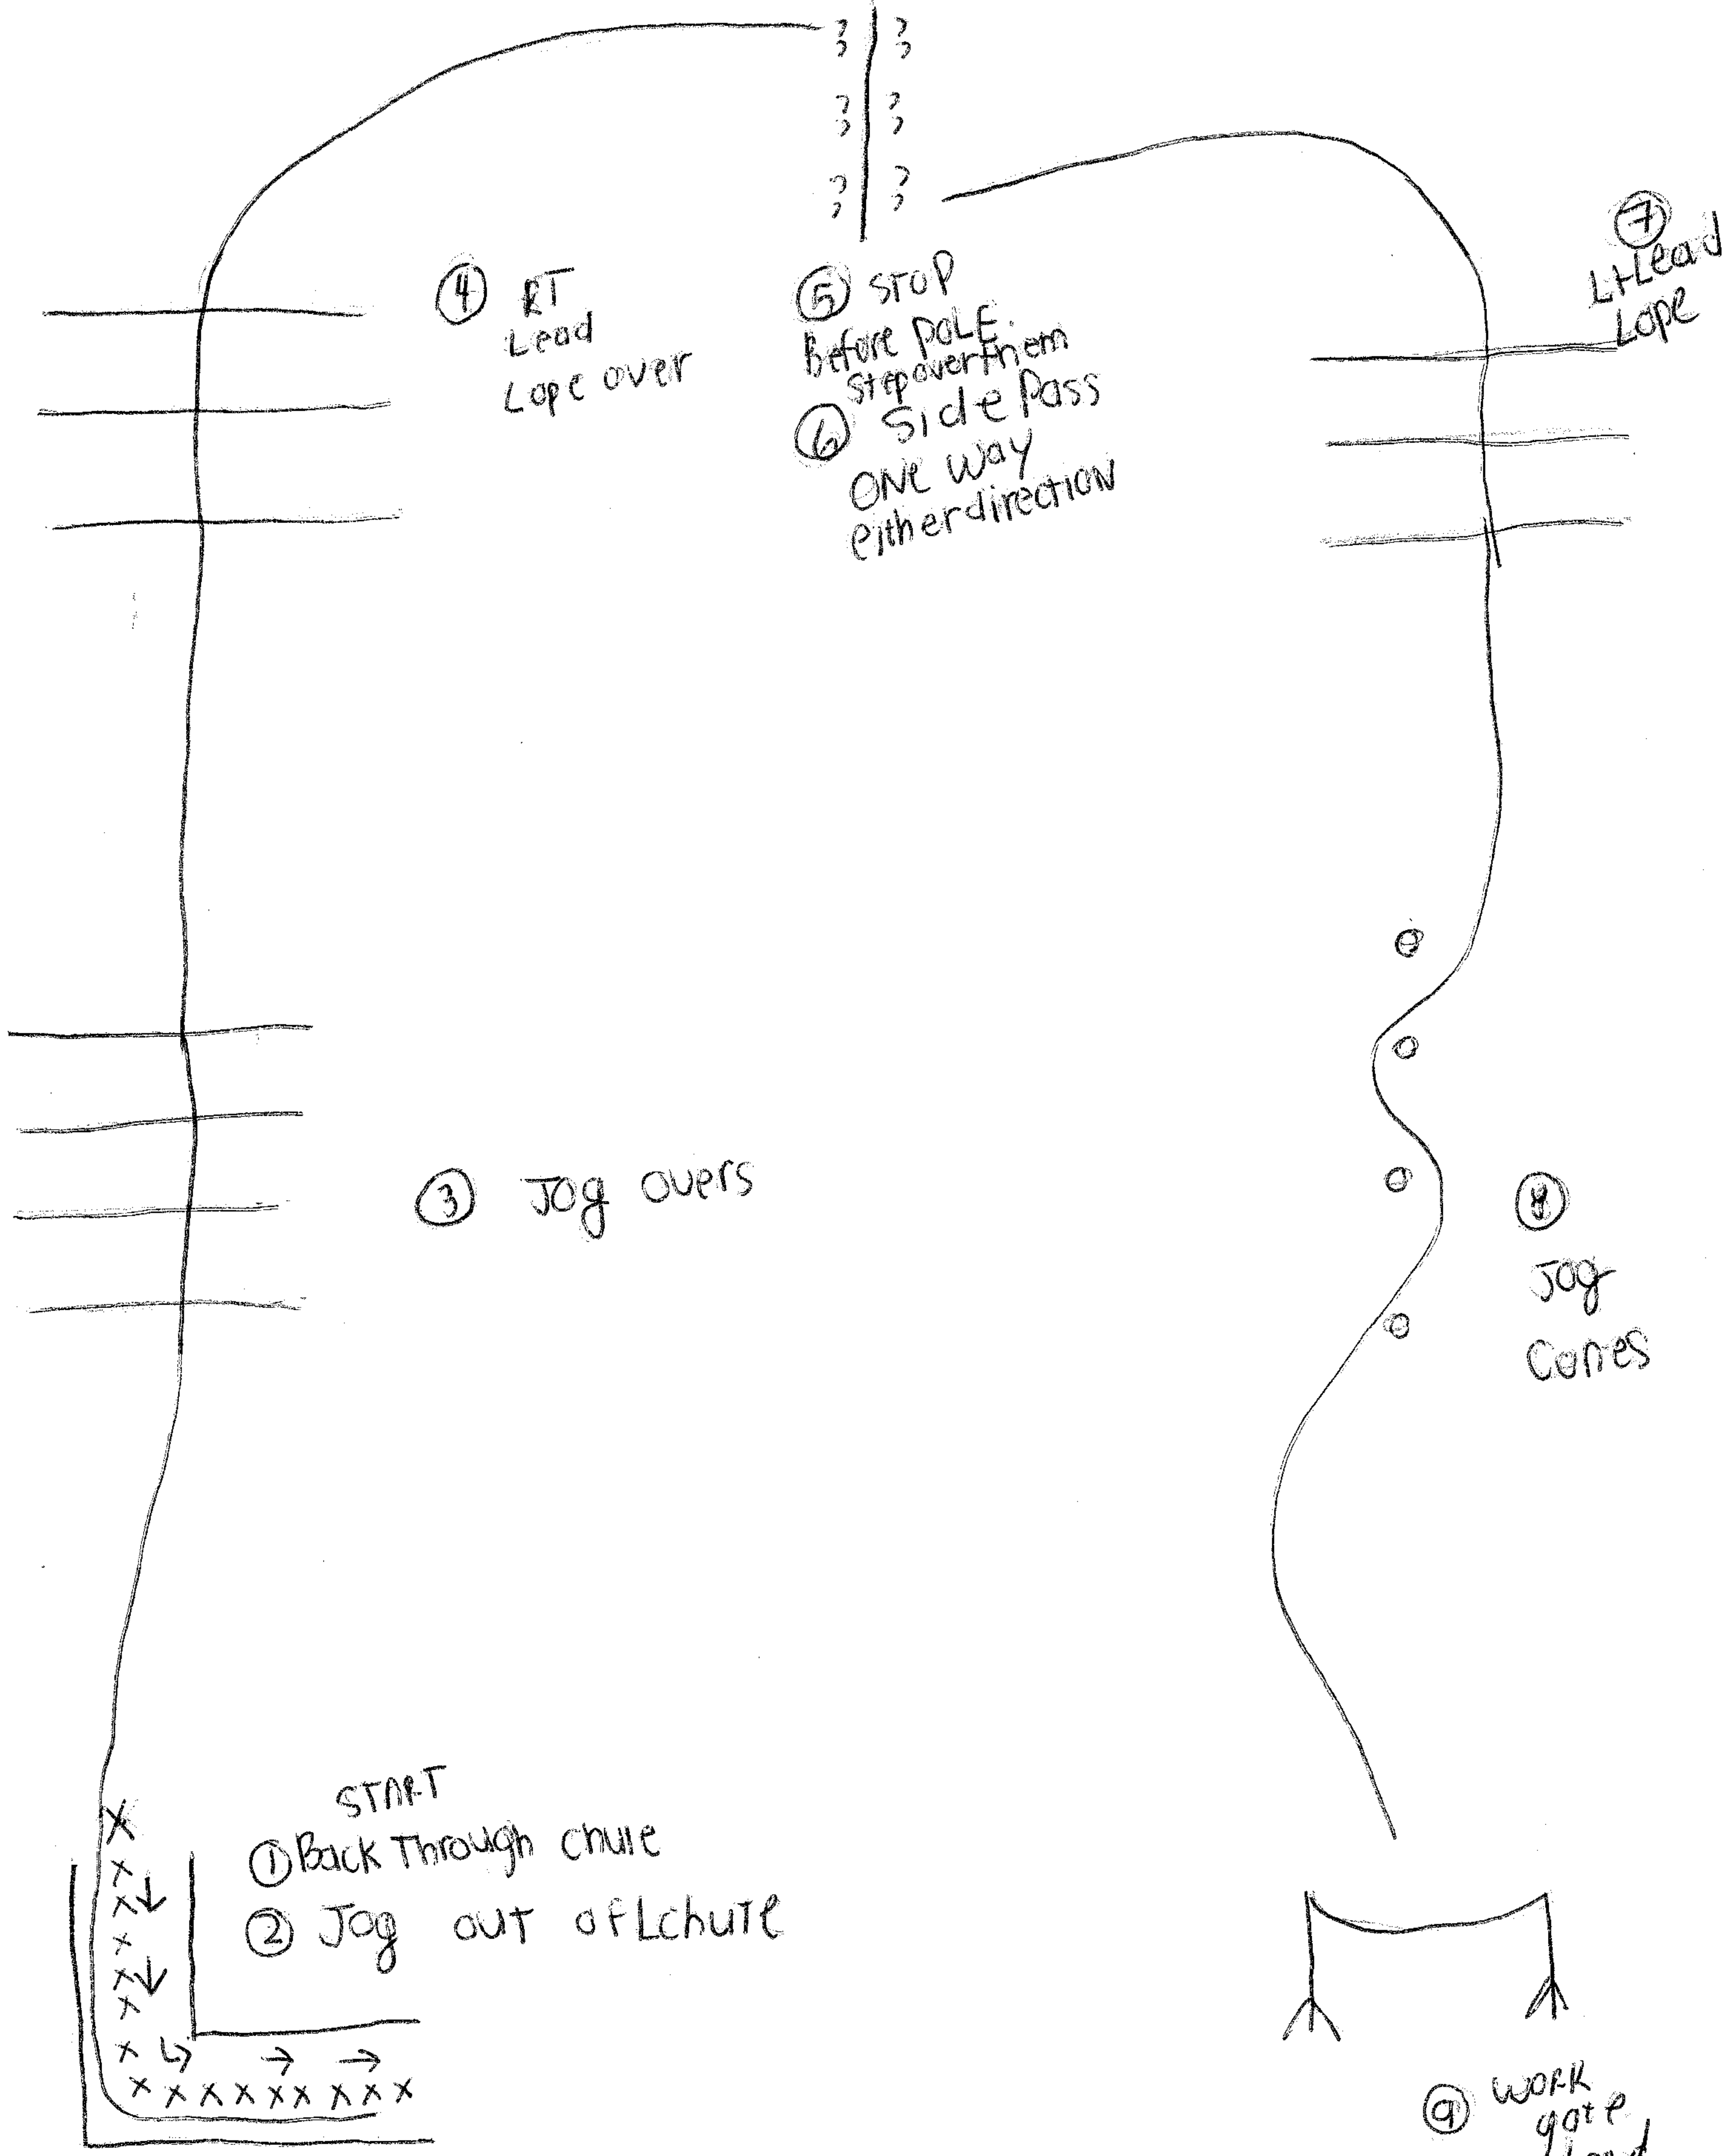 7
Lt Lead
Lope
4 RT
Lead
Lope over
5 STOP
Before POLE.
Step over them
6 Side Pass
ONE way
either direction
3 Jog overs
8
Jog
Cones
START
1 Back Through chute
2 Jog out of L chute
9 WORK
gate